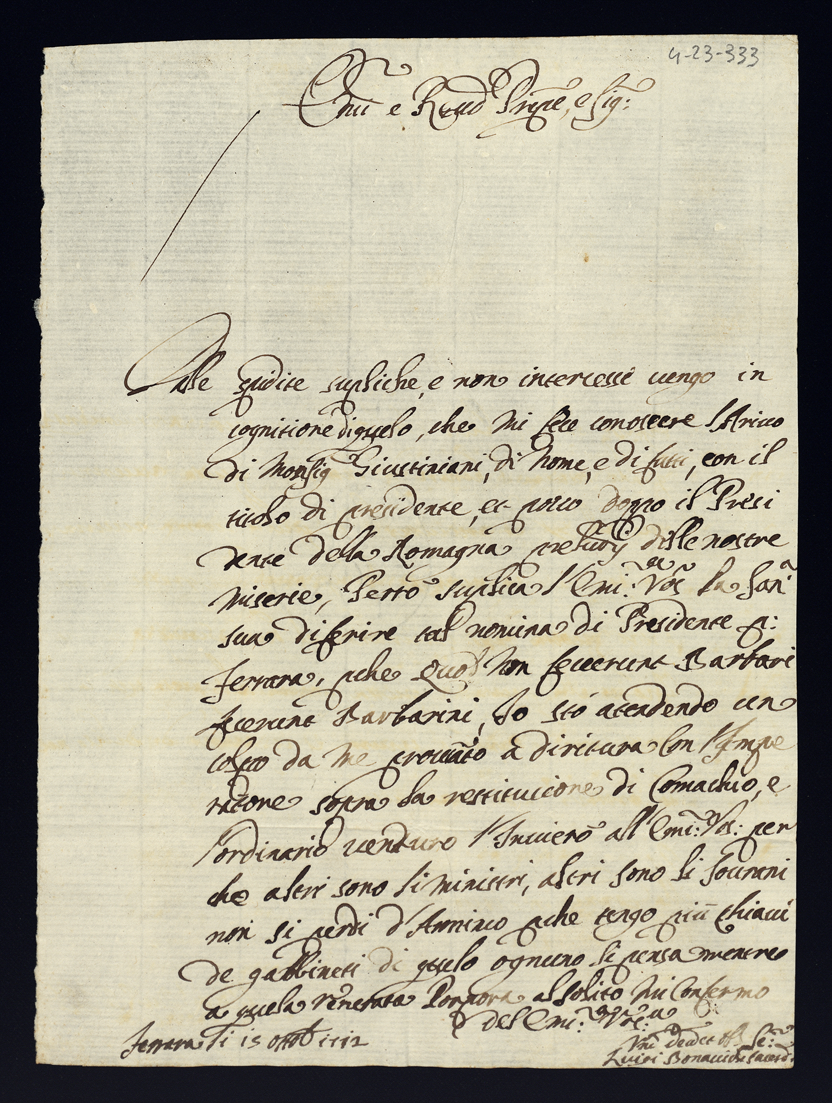 4-23-333
Em̃ e Reud Prñpe, e Sig:
Dalle gradite supliche, e non interesse uengo in
cognitione di quelo, che mi fece conoscere l'Ariuo
di Monsig Giustiniani, di Nome, e di fatti, con il
titolo di presidente, et poco doppo il Presi
dente della Romagna preludij delle nostre
miserie, Perciò suplica l'Emi: Vos la San
sua diferire tal nomina di Presidente p:
Ferrara, pche Quod non fecerunt Barbari
fecerunt Barbarini, Io sto atendendo un
colpo da me prouato a diritura con l'Impe
ratore sopra la restitucione di Comachio, e
l'ordinario venturo l'Inuierò all'Emi: Vos: per
che altri sono li ministri, altri sono li sourani
non si perdi d'Annimo pche tengo più Chiaui
de gabbineti di quelo ognuno si pensa mentre
a quela venerata Porpora al solito mi confermo
del Emi: Vre:
Ferrara li 15 ottob 1712
Vmi deuot obb Se:
Luigi Bonacioli sacerd.